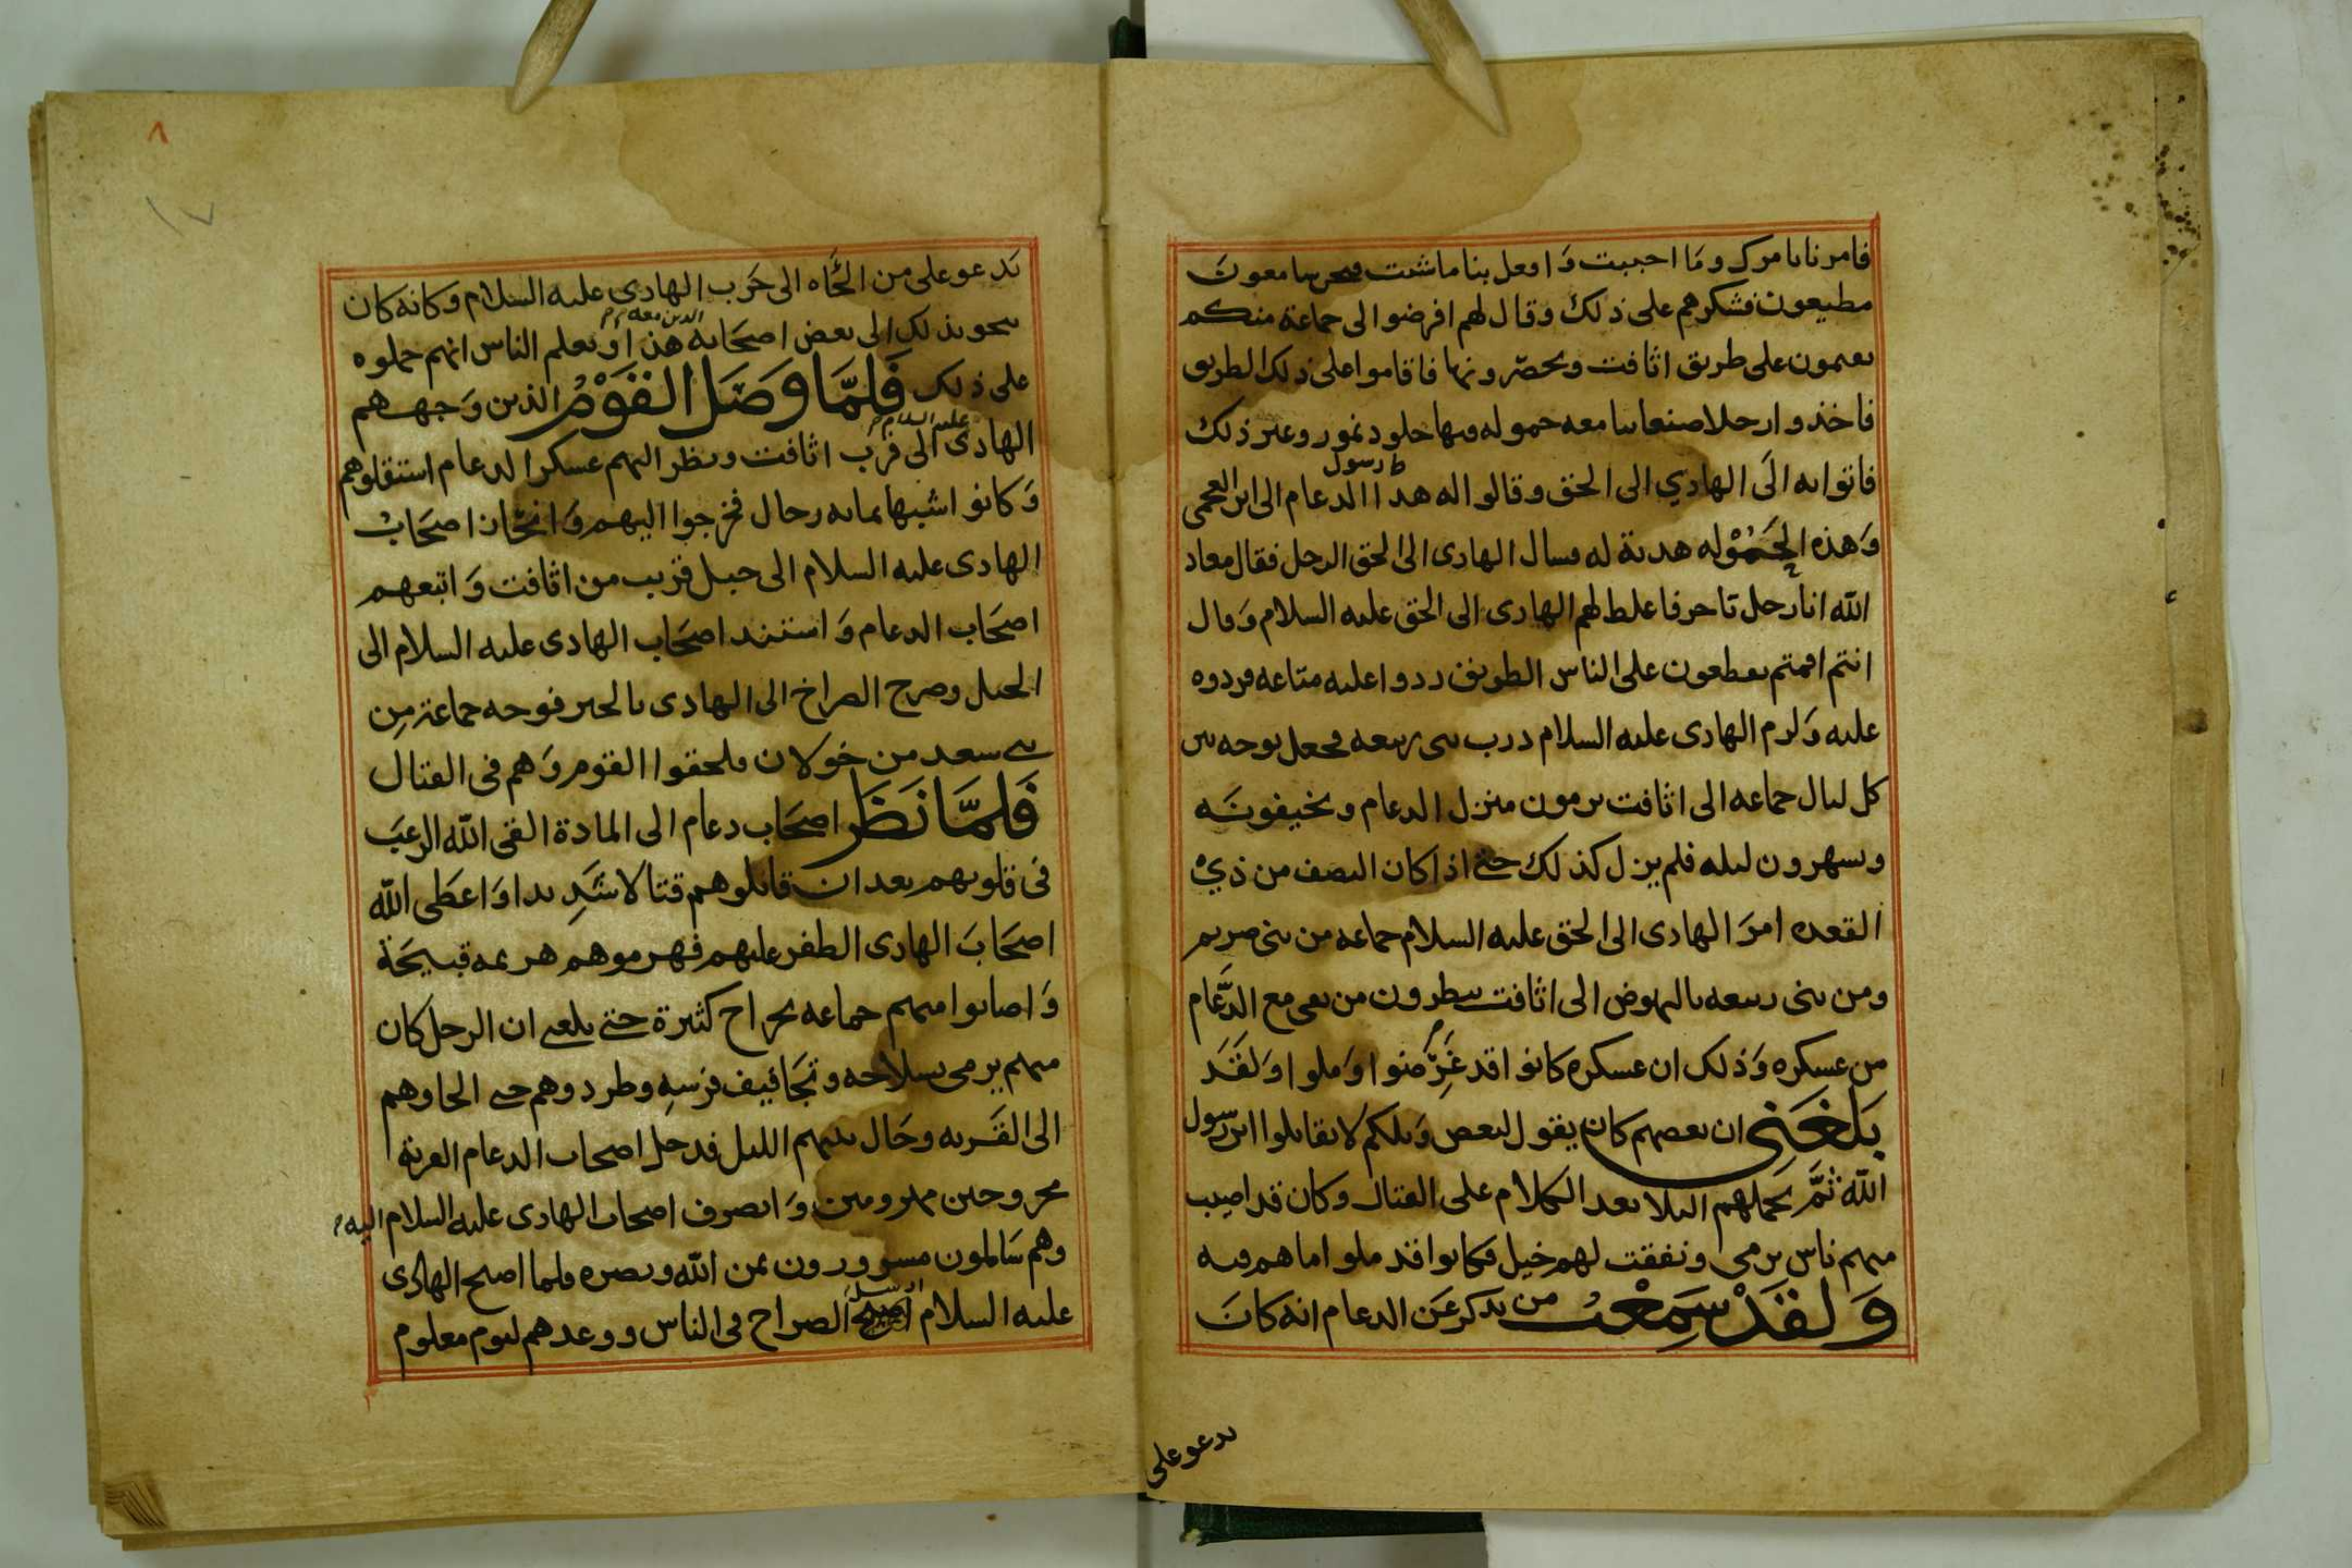 فامرنا بامرك وما احببت وافعل بنا ما شئت فنحن سامعون
مطيعون فشكرهم على ذلك وقال لهم افرضوا الى جماعة منكم
يقيمون على طريق اثافت ويحصرونها فاقاموا على ذلك الطريق
فاخذوا رجلا صنعانيا معه حموله فيها جلود نمور وغير ذلك
فاتوا به الَى الهادي الى الحق وقالوا له هذا رسول الدعام الى ابن
وَهذه الحَمُوْله هدية له فسال الهادى الى الحق الرجل فقال معاد
الله انا رجل تاجر فاغلظ لهم الهادى الى الحق عليه السلام وَقال
انتم اقمتم تقطعون على الناس الطريق ردوا عليه متاعه فردوه
عليه وَلزم الهادى عليه السلام درب بنى ربيعه فجعل يوجه بين
كل ليال جماعه الى اثافت يرمون منزل الدعام ويخيفونَه
ويسهرون ليله فلم يزل كذلك حتى اذا كان النصف من ذيْ
القعده امرَ الهادى الى الحق عليه السلام جماعه من بنى صريم
ومن بنى ربيعه بالنهوض الى اثافت ينظرون من بقى مع الدَّعَام
من عسكره وَذلك ان عسكره كانوا قد غَرِّضوا وَملوا وَلقَد
بَلغَنَى ان بعضهم كان يقول لبعض وَيلكم لا تقاتلوا ابن رسول
الله ثمَّ يحَملهم البلا بعد الكلام على القتال وكان قد اصيب
منهم ناس برمى ونفقت لهم خيل فكانوا قد ملوا ما هم فيه
وَلقَدْ سَمِعْتُ من يذكر عَن الدعام انه كانَ
يدعو على
يدعو على من الجَاه الى حَرب الهادى عليه السلام وكانه كان
ينحو بذلك الى بعض اصحَابه الذين معه هذا او يعلم الناس انهم حملوه
على ذلك فَلمَّا وَصَل القَوْمُ الذين وَجههم
الهادى عليه السلام الى قرَب اثافت ونظر اليهم عسكر الدعام استقلوهم
وَكانوا شبيها بمائه رجال فخرجوا اليهم وَانحَاز اصحَابُ
الهادى عليه السلام الى جبل قريب من اثافت وَاتبعهم
اصحَاب الدعام وَاستند اصحَاب الهادى عليه السلام الى
الجبل وصرخ الصراخ الى الهادى بالخبر فوجه جماعة مِن
بنى سعد من خولان فلحقوا القوم وَهم فى القتال
فَلمَّا نَظَر اصحَاب دعام الى المادة القى الله الرعبَ
فى قلوبهم بعد ان قاتلوهم قتالا شَدِيدا وَاعطَى الله
اصحَابَ الهادى الظفر عليهم فهزموهم هزيمه قبيحَة
وَاصابوا منهم جماعه بجراح كثيرة حتى بلغنى ان الرجل كان
منهم يرمى بسلاحه وتجَافيف فرَسِه وطردوهم حتى الجاوهم
الى القَريه وحَال بينهم الليل فدخل اصحاب الدعام القرية
مجروحين مهزومين وَانصرف اصحاب الهادى عليه السلام اليه
وهم سَالمون مسرورون بمن الله ونصره فلما اصبح الهادى
عليه السلام ارسل الصراخ فى الناس ووعدهم ليوم معلوم
٨
١٧